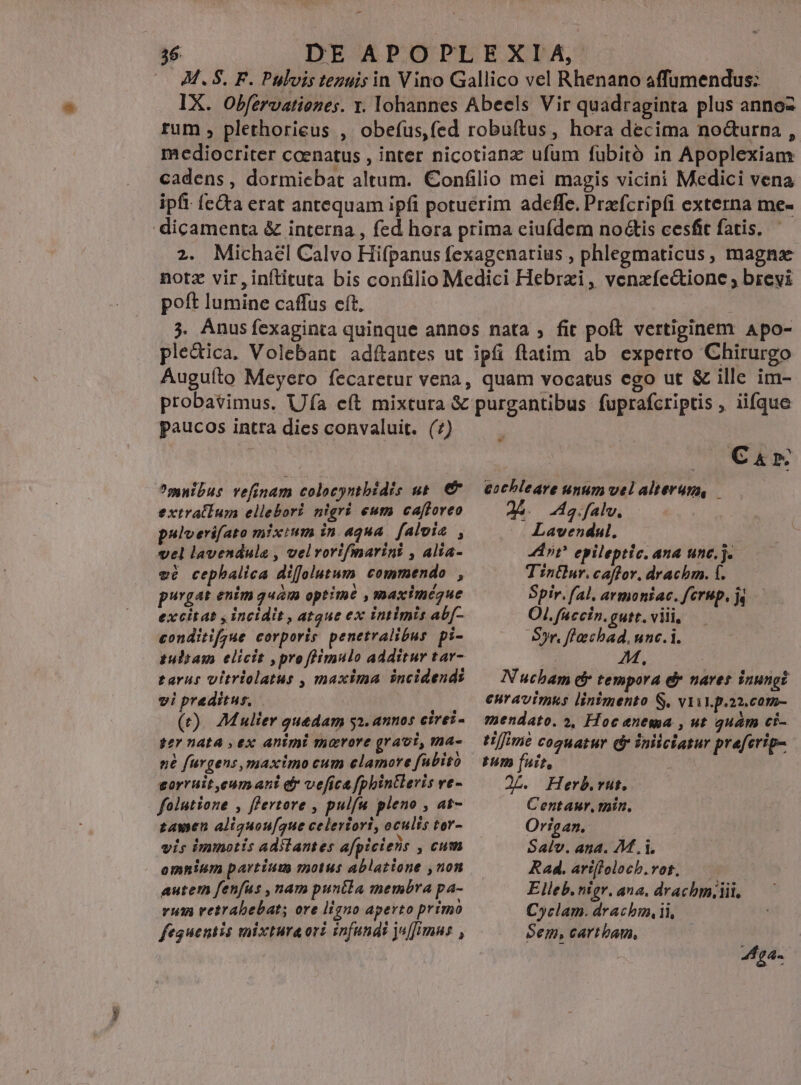 36 DE APOPLEXIA,
M. S. F. Pulvis tenuis in Vino Gallico vel Rhenano aſſumendus:
IX. Obſervationes. 1. Iohannes Abeels Vir quadraginta plus anno-
rum, plethoricus, obeſus, ſed robuſtus, hora decima nocturna,
mediocriter cœnatus, inter nicotianæ uſum ſubitò in Apoplexiam
cadens, dormiebat altum. Conſilio mei magis vicini Medici vena
ipſi ſecta erat antequam ipſi potuerim adeſſe. Præſcripſi externa me-
dicamenta & interna, ſed hora prima eiuſdem noctis cesſit fatis.
2. Michaël Calvo Hiſpanus ſexagenarius, phlegmaticus, magnæ
notæ vir, inſtituta bis conſilio Medici Hebræi, venæſectione, brevi
poſt lumine caſſus eſt.
3. Anus ſexaginta quinque annos nata, fit poſt vertiginem apo-
plectica. Volebant adſtantes ut ipſi ſtatim ab experto Chirurgo
Auguſto Meyero ſecaretur vena, quam vocatus ego ut & ille im-
probavimus. Uſa eſt mixtura & purgantibus ſupraſcriptis, iiſque
paucos intra dies convaluit. (t)
CAP.
omnibus reſinam colocynthidis ut &
extractum ellebori nigri cum caſtoreo
pulveriſato mixtum in aqua ſalviæ,
vel lavendulæ, vel roriſmarini, alia-
ve cephalica diſſolutum commendo,
purgat enim quàm optimè, maximéque
excitat, incidit, atque ex intimis abſ-
conditiſque corporis penetralibus pi-
tuitam elicit, pro ſtimulo additur tar-
tarus vitriolatus, maxima incidendi
vi præditus.
(t) Mulier quædam 52. annos circi-
ter nata, ex animi mœrore gravi, ma-
nè ſurgens, maximo cum clamore ſubitò
corruit, eum ani & veſicæ ſphincteris re-
ſolutione, ſtertore, pulſu pleno, at-
tamen aliquouſque celeriori, oculis tor-
vis immotis adſtantes aſpiciens, cum
omnium partium motus ablatione, non
autem ſenſus, nam puncta membra pa-
rum retrahebat; ore ligno aperto primò
ſequentis mixturæ ori infundi juſſimus,
cochleare unum vel alterum,
℞. Aq. ſalv.
Lavendul.
Ant' epileptic. ana unc. j.
Tinctur. caſtor. drachm. ſ.
Spir. ſal. armoniac. ſcrup. jſ
Ol. ſuccin. gutt. viii.
Syr. ſtœchad. unc. i.
M.
Nucham & tempora & nares inungi
curavimus linimento §. VIII. p. 22. com-
mendato. 2. Hoc enema, ut quàm ci-
tiſſimè coquatur & iniiciatur præſcrip-
tum fuit,
℞. Herb. rut.
Centaur. min.
Origan.
Salv. ana. M. i.
Rad. ariſtoloch. rot.
Elleb. nigr. ana. drachm. iii.
Cyclam. drachm. ii.
Sem. cartham.
Aga-